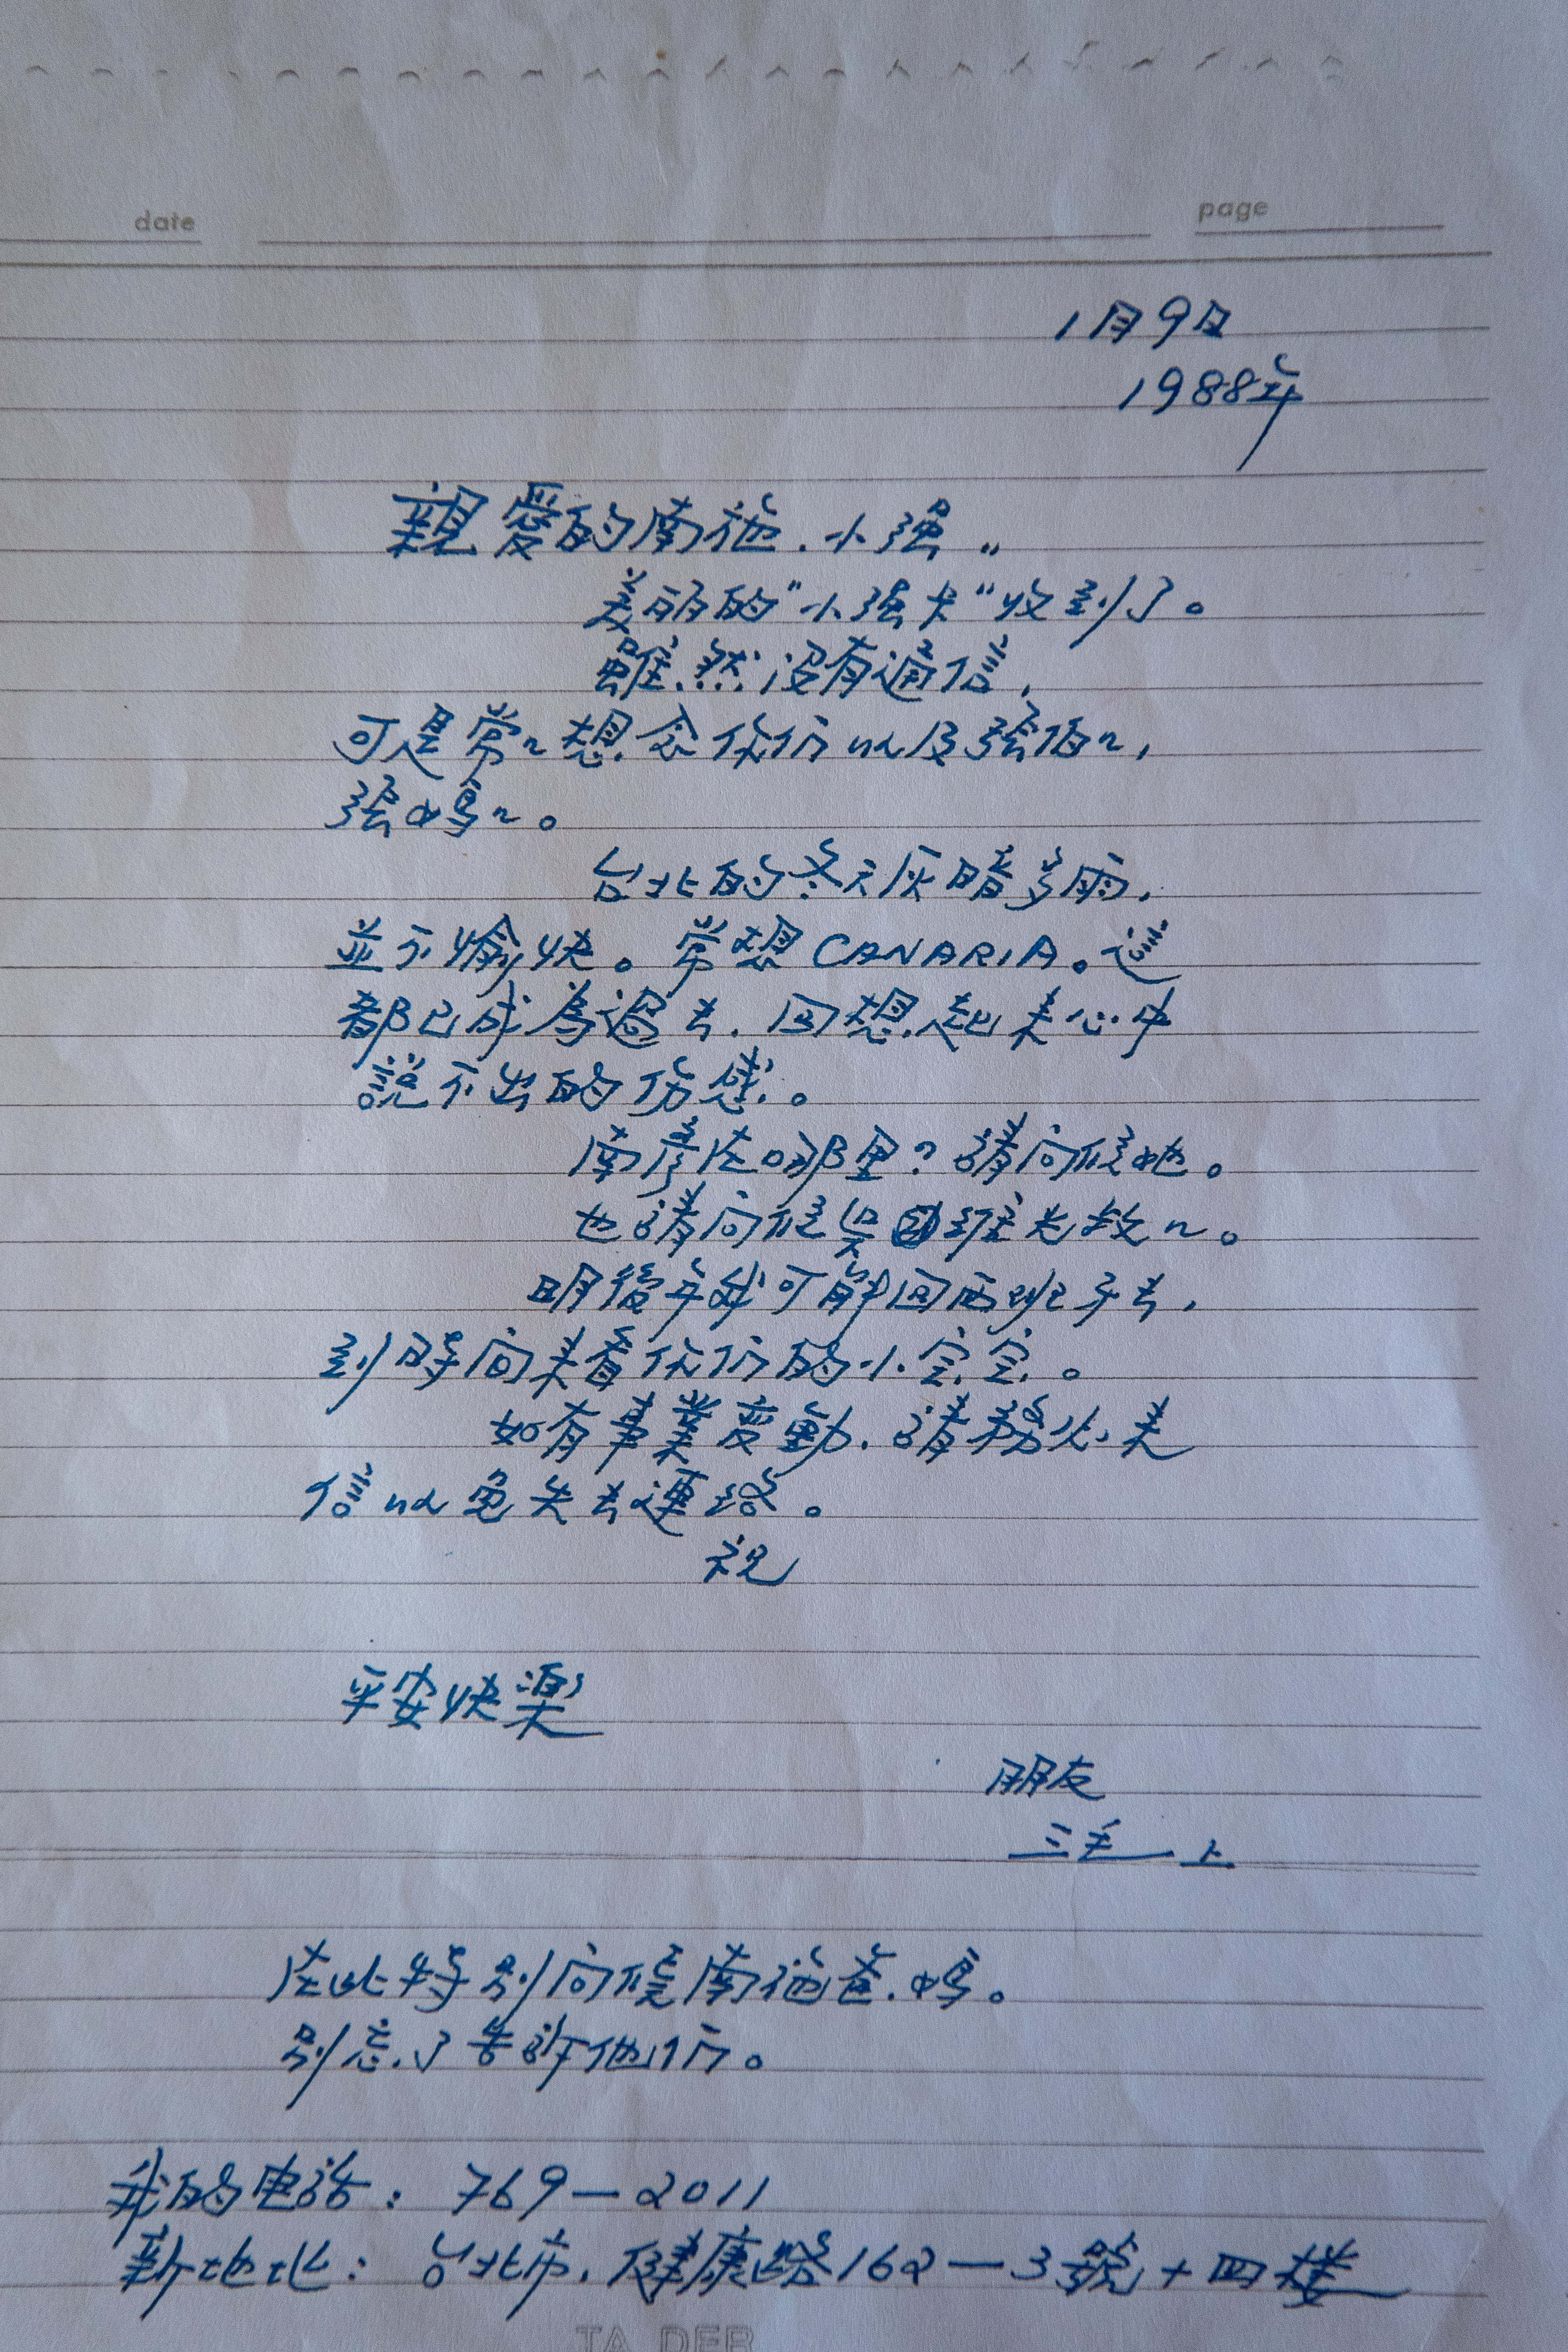 date
page
1月9日
1988年
親愛的南施.小強..
美丽的"小強卡"收到了。
雖然没有通信,
可是常~想念你们以及張伯~,
張媽~。
台北的冬天灰暗多雨,
並不愉快。常想CANARIA。這
都已成為過去.回想起来心中
說不出的伤感。
南彦在哪里?請问候她。
也請问候吴维光教~。
明後年我可能回西班牙去,
到時间来看你们的小宝宝。
如有事業变動.請務必来
信以免失去連络。
祝
平安快楽
朋友
三毛上
在此特别问候南施爸.媽。
别忘了告訴他们。
我的电話:769-2011
新地址:台北市.健康路162-3號十四楼
TA DER